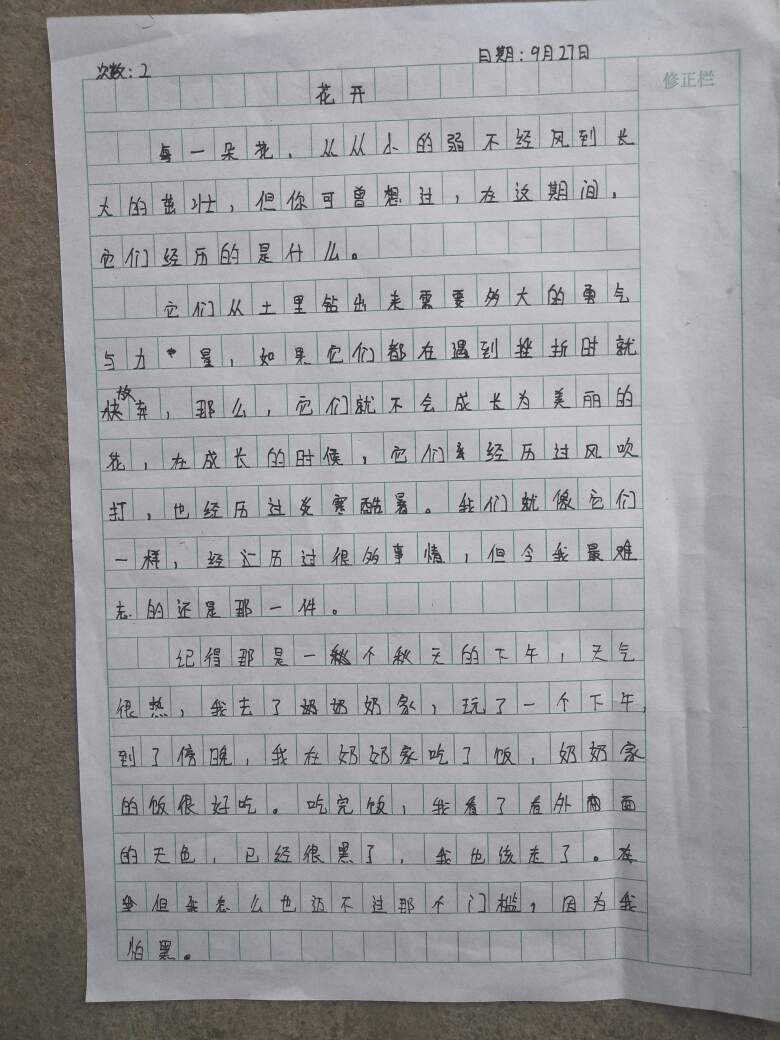 次数:2
日期:9月27日
修正栏
花开
每一朵花,从从小的弱不经风到长
大的茁壮,但你可曾想过,在这期间,
它们经历的是什么。
它们从土里钻出来需要多大的勇气
与力量,如果它们都在遇到挫折时就
放弃,那么,它们就不会成长为美丽的
花,在成长的时候,它们经历过风吹
打,也经历过炎寒酷暑。我们就像它们
一样,经历过很多事情,但令我最难
忘的还是那一件。
记得那是一个秋天的下午,天气
很热,我去了奶奶家,玩了一个下午,
到了傍晚,我在奶奶家吃了饭,奶奶家
的饭很好吃。吃完饭,我看了看外面
的天色,已经很黑了,我也该走了。
但我怎么也迈不过那个门槛,因为我
怕黑。